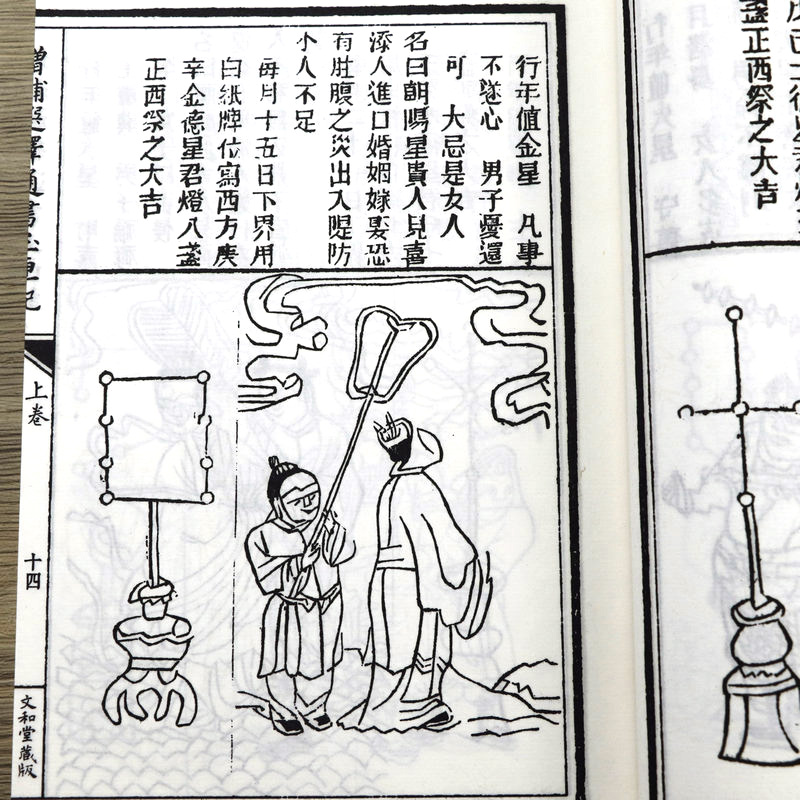 行年值金星　凡事
不遂心　男子憂還
可　大忌是女人
名曰朝陽星貴人見喜
添人進口婚姻嫁娶恐
有肚腹之災出入隄防
小人不足
每月十五日下界用
白紙牌位寫西方庚
辛金德星君燈八盞
正西祭之大吉
增補選擇通書玉匣記
上卷
十四
文和堂藏版
盞正西祭之大吉